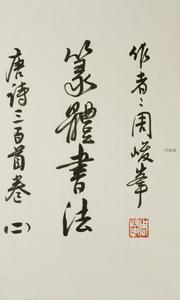 作者：周峻峯
篆體書法
唐詩三百首卷(二)